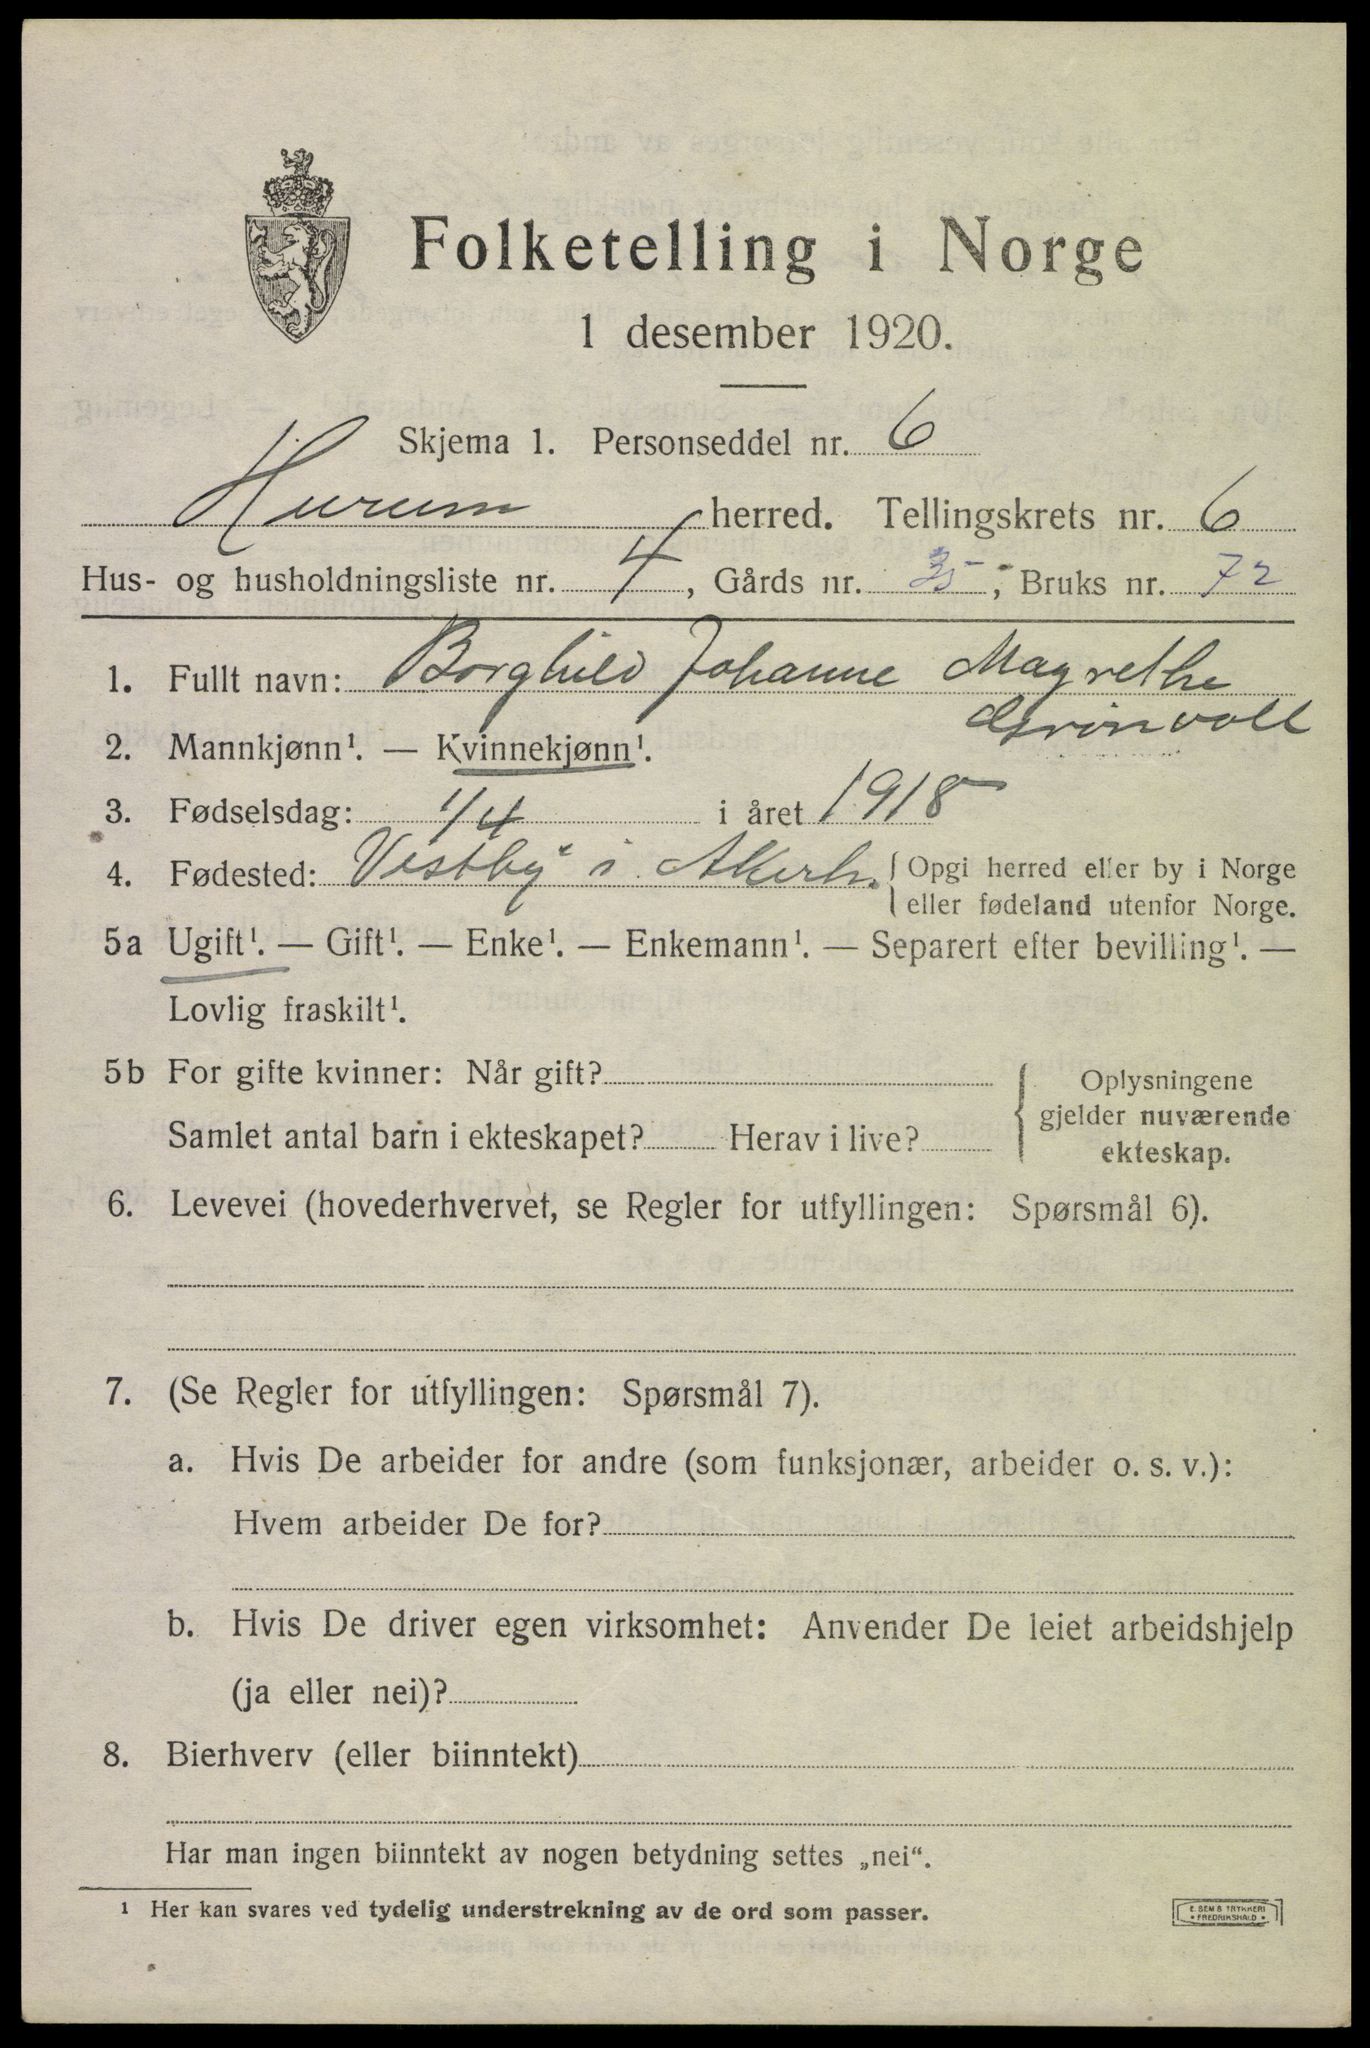 Folketelling i Norge
1 desember 1920.
Skjema 1. Personseddel nr. 6
Hurum herred. Tellingskrets nr. 6
Hus- og husholdningsliste nr. 4, Gårds nr. 35, Bruks nr. 72
1. Fullt navn: Borghild Johanne Magrethe
Grönvoll
2. Mannkjønn¹. — Kvinnekjønn¹.
3. Fødselsdag: 1/4 i året 1918
4. Fødested: Vestby i Akersh. { Opgi herred eller by i Norge
eller fødeland utenfor Norge.
5a Ugift¹. — Gift¹. — Enke¹. — Enkemann¹. — Separert efter bevilling¹. —
Lovlig fraskilt¹.
5b For gifte kvinner: Når gift? { Oplysningene
gjelder nuværende
Samlet antal barn i ekteskapet? Herav i live?
ekteskap.
6. Levevei (hovederhvervet, se Regler for utfyllingen: Spørsmål 6).
7. (Se Regler for utfyllingen: Spørsmål 7).
a. Hvis De arbeider for andre (som funksjonær, arbeider o. s. v.):
Hvem arbeider De for?
b. Hvis De driver egen virksomhet: Anvender De leiet arbeidshjelp
(ja eller nei)?
8. Bierhverv (eller biinntekt)
Har man ingen biinntekt av nogen betydning settes „nei“.
¹ Her kan svares ved tydelig understrekning av de ord som passer.
E. SEM B TRYKKERI
• FREDRIKSHALD •